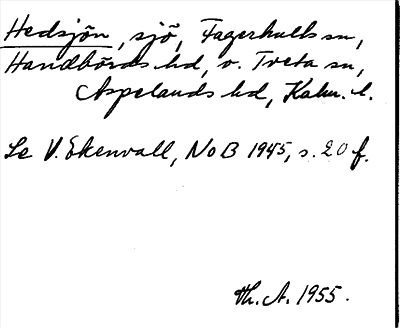 Hedsjön, sjö, Fagerhults sn,
Handbörds hd, o. Tveta sn,
Aspelands hd, Kalm. l.
Se V. Ekenvall, NoB 1945, s. 20 f.
Th. A. 1955.